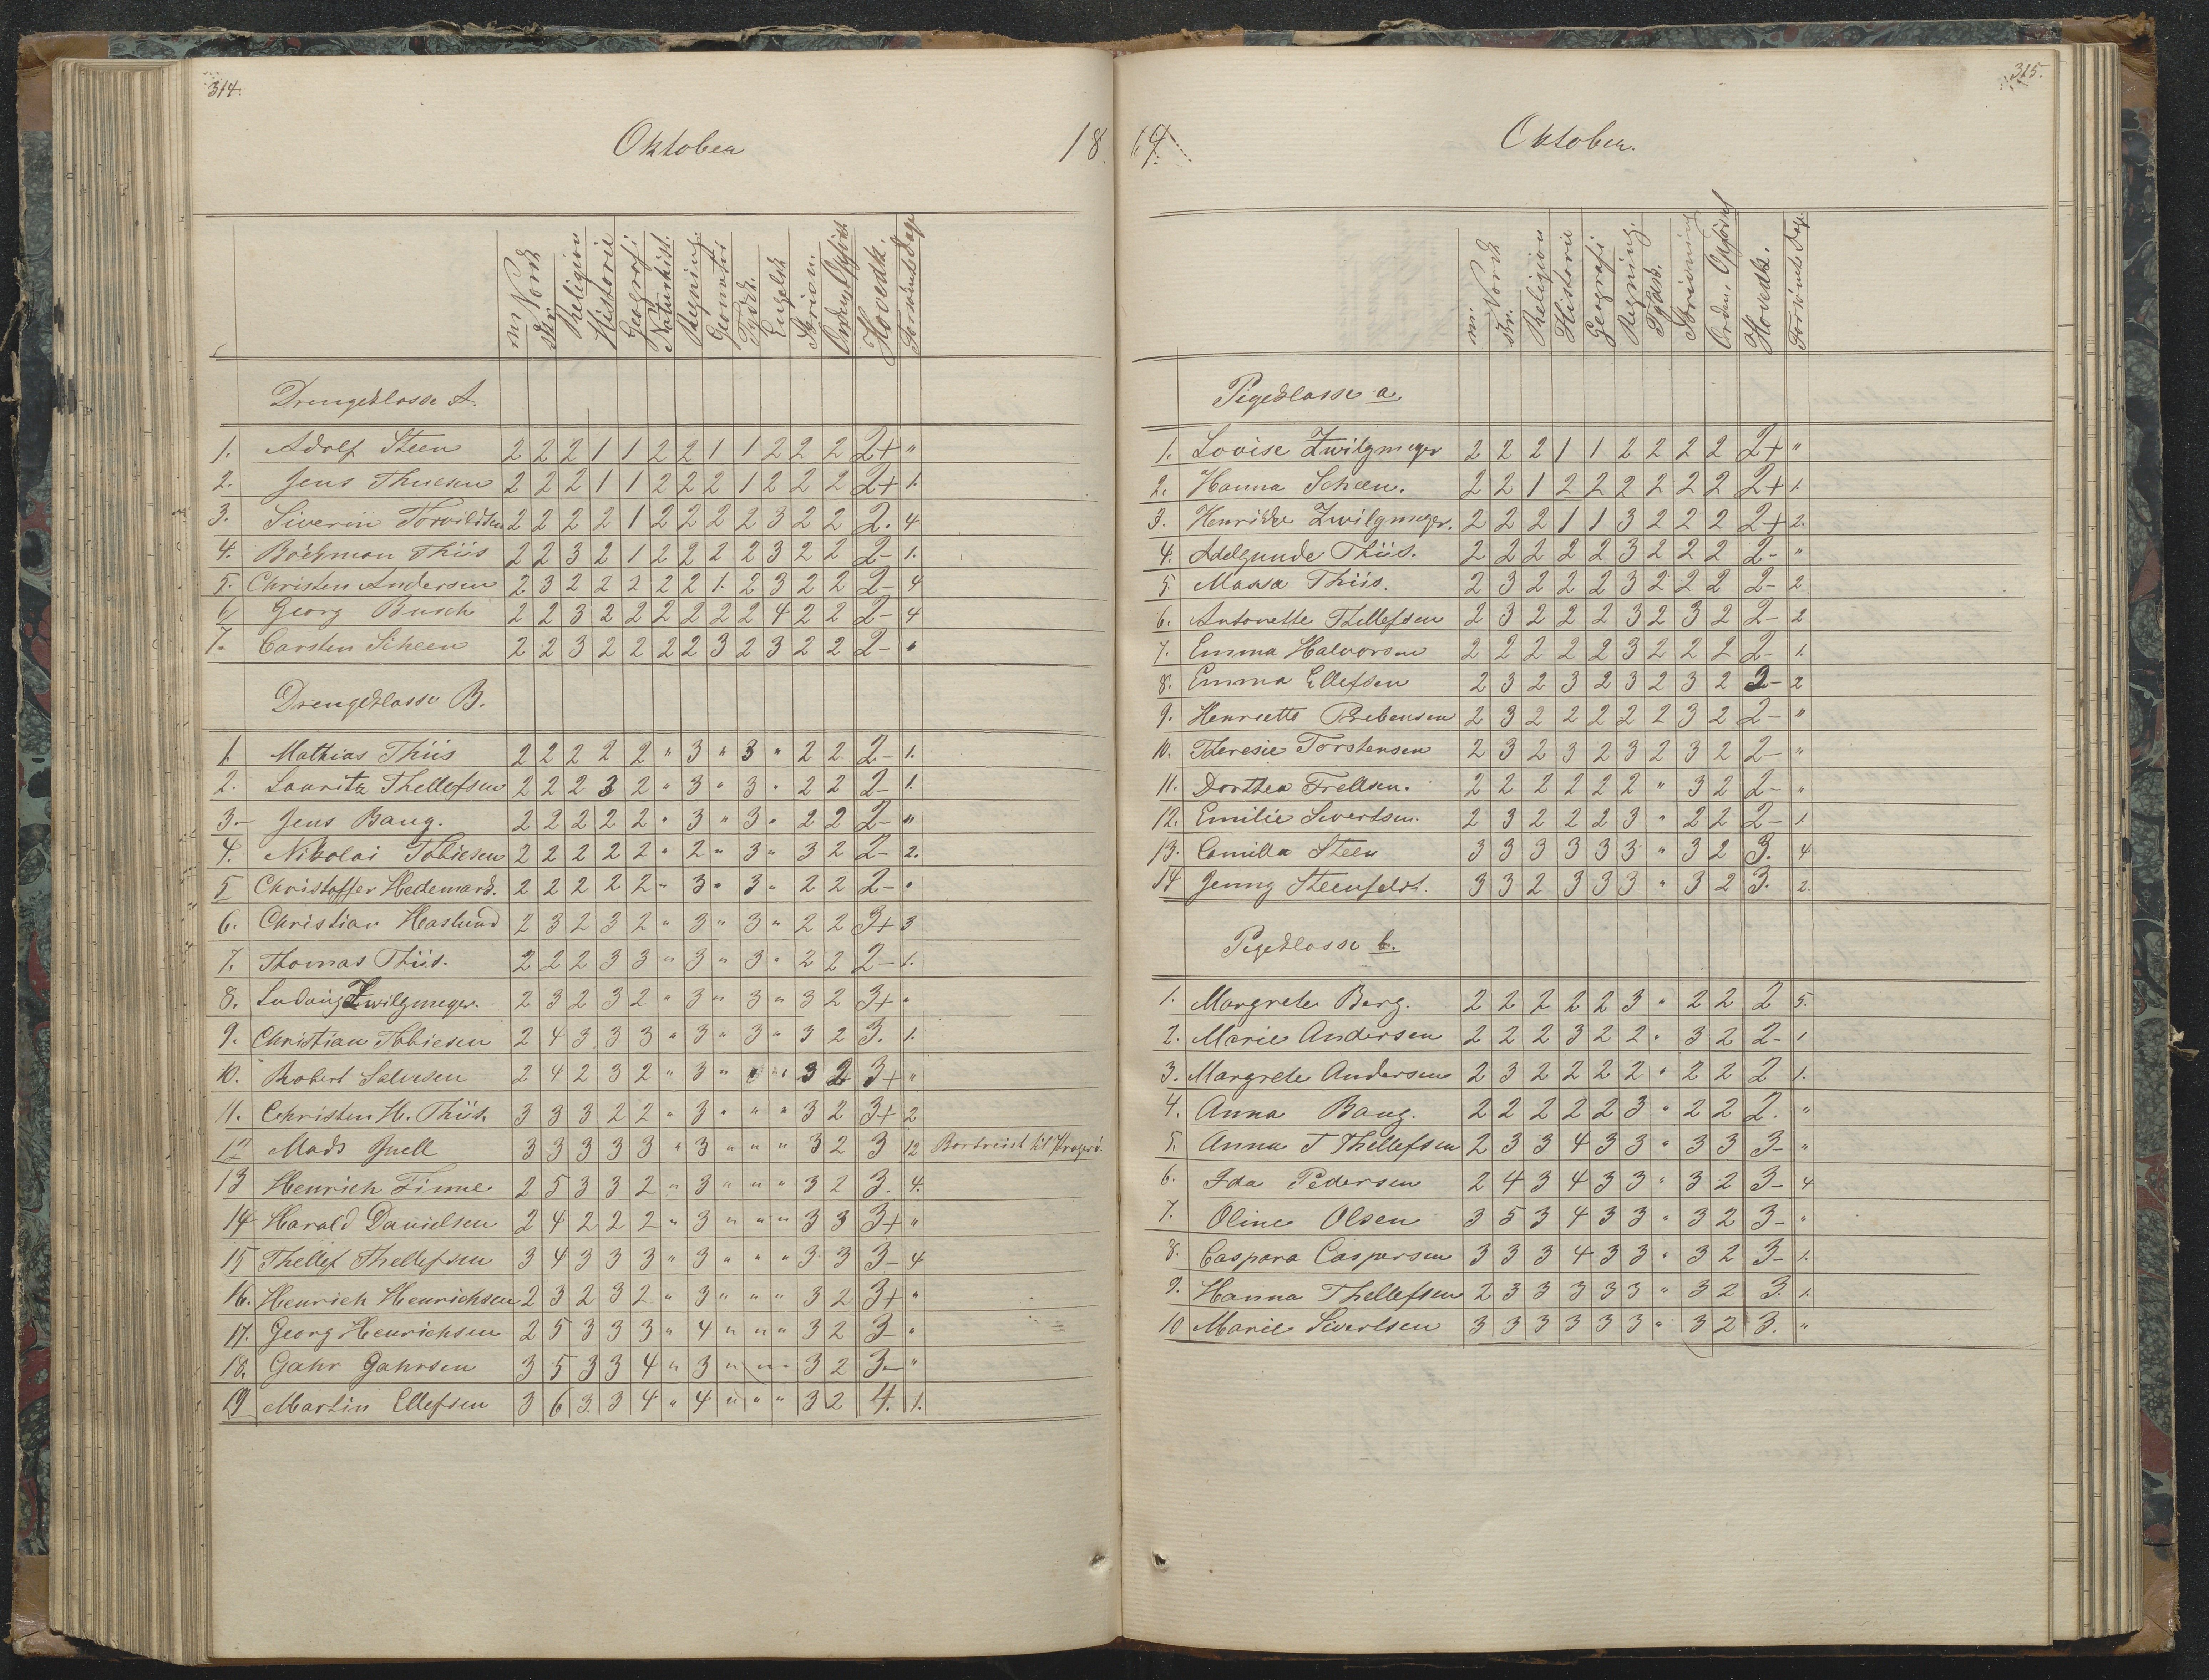 314.
Oktober
18
m. Norsk skr. Religion Historie Geografi Naturhist. Regning. Geometri Tydsk. Engelsk Skrivn. Orden, Opførsel Hovedk. Forsømte Dage
Drengeklasse A.
1. Adolf Steen 2 2 2 1 1 2 2 1 1 2 2 2 2+ "
2. Jens Thuesen 2 2 2 1 1 2 2 2 1 2 2 2 2+ 1.
3. Siverin Torvildsen 2 2 2 2 1 2 2 2 2 3 2 2 2. 4
4. Böckman Thiis 2 2 3 2 1 2 2 2 2 3 2 2 2- 1.
5. Christen Andersen 2 3 2 2 2 2 2 1. 2 3 2 2 2- 4
6 Georg Busch 2 2 3 2 2 2 2 2 2 4 2 2 2- 4
7. Carsten Scheen 2 2 3 2 2 2 2 3 2 3 2 2 2- "
Drengeklasse B.
1. Mathias Thiis 2 2 2 2 2 " 3 " 3 " 2 2 2- 1.
2. Lauritz Thellefsen 2 2 2 3 2 " 3 " 3 " 2 2 2- 1.
3. Jens Bang. 2 2 2 2 2 " 3 " 3 " 2 2 2- "
4. Nikolai Tobiesen 2 2 2 2 2 " 2 " 3 " 3 2 2- 2.
5 Christoffer Hedemark. 2 2 2 2 2 " 3 " 3 " 2 2 2- "
6. Christian Haslund 2 3 2 3 2 " 3 " 3 " 2 2 3+ 3
7. Thomas Thiis. 2 2 2 3 3 " 3 " 3 " 2 2 2- 1.
8. Ludvig Zwilgmeyer. 2 3 2 3 2 " 3 " 3 " 3 2 3+ "
9. Christian Tobiesen 2 4 3 3 3 " 3 " 3 " 3 2 3. 1.
10. Robert Salvesen 2 4 2 3 2 " 3 " " " 3 2 3+ "
11. Christen H. Thiis. 3 3 3 2 2 " 3 " " " 3 2 3+ 2
12 Mads Juell 3 3 3 3 3 " 3 " " " 3 2 3 12 Bortreist til Kragerö.
13 Henrich Finne. 2 5 3 3 2 " 3 " " " 3 2 3. 4.
14 Harald Danielsen 2 4 2 2 2 " 3 " " " 3 3 3+ "
15 Thellef Thellefsen 3 4 3 3 3 " 3 " " " 3 3 3- 4
16. Henrich Henrichsen 2 3 2 3 2 " 3 " " " 3 2 3+ "
17. Georg Henrichsen 2 5 3 3 3 " 4 " " " 3 2 3- "
18. Gahr Gahrsen 3 5 3 3 4 " 3 " " " 3 2 3- "
19 Martin Ellefsen 3 6 3 3 4 " 4 " " " 3 2 4. 1.
315.
Oktober.
m. Norsk skr. Religion Historie Geografi Regning. Tydsk. Skrivning Orden, Opførsel Hovedk. Forsømte Dage.
Pigeklasse a.
1. Lovise Zwilgmeyer 2 2 2 1 1 2 2 2 2 2+ "
2. Hanna Scheen. 2 2 1 2 2 2 2 2 2 2+ 1.
3. Henrikke Zwilgmeyer. 2 2 2 1 1 3 2 2 2 2+ 2.
4. Adelgunde Thiis. 2 2 2 2 2 3 2 2 2 2- "
5. Maksa Thiis. 2 3 2 2 2 3 2 2 2 2- 2
6. Antonette Thellefsen 2 3 2 2 2 3 2 3 2 2- 2
7. Emma Halvorsen 2 2 2 2 2 3 2 2 2 2- 1.
8. Emma Ellefsen 2 3 2 3 2 3 2 3 2 2- 2
9. Henriette Prebensen 2 3 2 2 2 2 2 3 2 2- "
10. Theresie Torstensen 2 3 2 3 2 3 2 3 2 2- "
11. Dorthea Frellsen. 2 2 2 2 2 2 " 3 2 2- "
12. Emilie Sivertsen. 2 3 2 2 2 3 " 2 2 2- 1.
13. Camilla Steen 3 3 3 3 3 3 " 3 2 3. 4
14 Jenny Steenfeldt. 3 3 2 3 3 3 " 3 2 3. 2.
Pigeklasse b.
1. Margrete Berg. 2 2 2 2 2 3 " 2 2 2 5.
2. Marie Andersen 2 2 2 3 2 2 " 3 2 2- 1
3. Margrete Andersen 2 3 2 2 2 2 " 2 2 2 1.
4. Anna Bang. 2 2 2 2 2 3 " 2 2 2. "
5. Anna T Thellefsen 2 3 3 4 3 3 " 3 3 3- "
6. Ida Pedersen 2 4 3 4 3 3 " 3 2 3- 4
7. Oline Olsen 3 5 3 4 3 3 " 3 2 3- "
8. Caspara Caspersen 3 3 3 4 3 3 " 3 2 3- 1.
9. Hanna Thellefsen 2 3 3 3 3 3 " 3 2 3. 1.
10 Marie Sivertsen 3 3 3 3 3 3 " 3 2 3. "